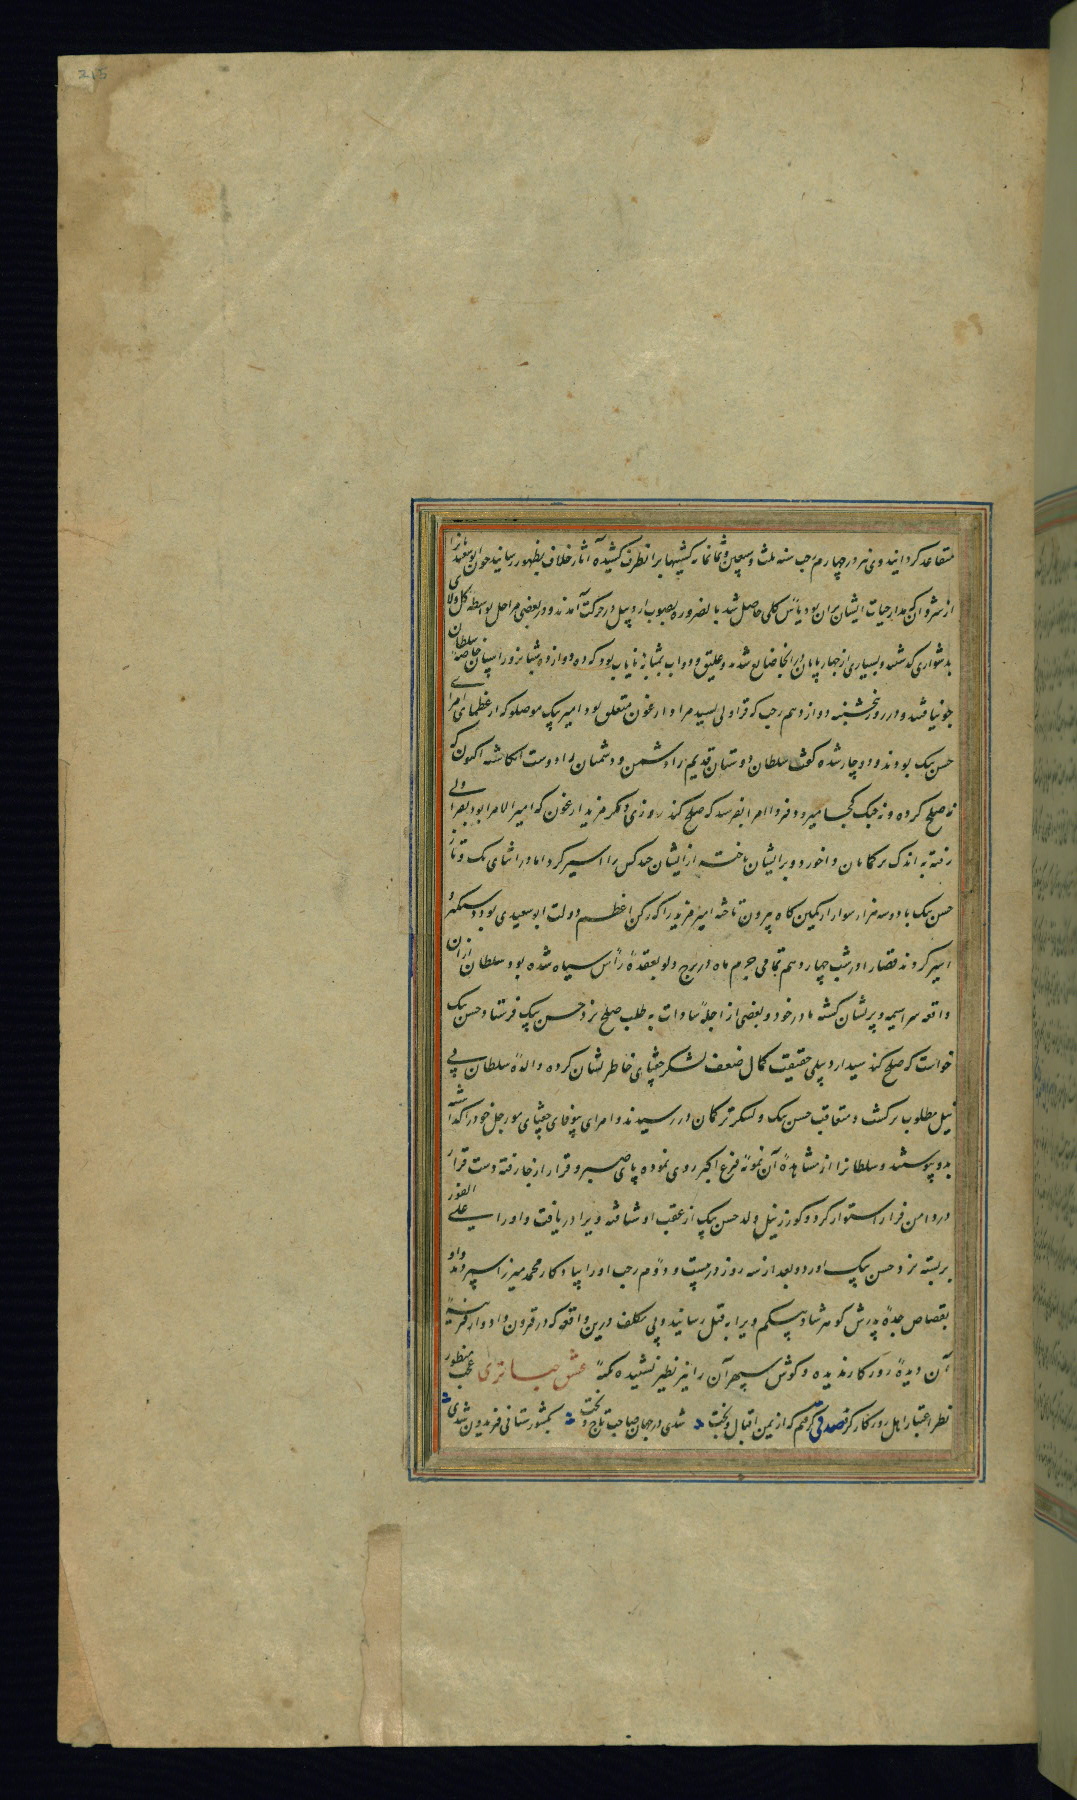 215
متقاعد گردانید وی نیز در چهارم رجب سنه ثلث و سبعین و ثمانمایه کشتیها بر انطرف کشیده آثار خلاف بظهور رسانید چون ابوسعید را
از شروان که مدار حیات ایشان بران بود یأس کلی حاصل شد بالضروره بصوب اردبیل در حرکت آمدند و در بعضی مراحل بواسطه گل ولای
بدشواری گذشتند و بسیاری از چهارپایان در انجا ضایع شدند و علیق دواب بمثابه نایاب بود که ده دوازده شبانروز اسپان خاصه سلطان
جو نیافتند و در روز پنجشنبه دوازدهم رجب که قراولی بسید مراد ارغون متعلق بود امیر بیک موصلو که از عظمای امرای
حسن بیک بودند دوچار شده گفت سلطان دوستان قدیم را دشمن و دشمنان را دوست انگاشته اکنون که
نه صلح کرده و نه جنگ کجا میرود و فردا امرا بفرستد که صلح کند روزی دیگر مزید ارغون که امیر الامرا بود بقراولی
رفته به اندک ترکمانان واخورد و بر ایشان تاخته از ایشان چند کس را اسیر کرد اما در اثنای تک و تاز
حسن بیک با دو سه هزار سوار از کمین گاه بیرون تاخته امیر مزید را که رکن اعظم دولت ابوسعیدی بود دستگیر
اسیر کردند قضا را در شب چهاردهم تمامی جرم ماه در برج دلو بعقده رأس سیاه شده بود سلطان از آن
واقعه سراسیمه و پریشان گشته مادر خود و بعضی از اجله سادات به طلب صلح نزد حسن بیک فرستاد حسن بیک
خواست که صلح کند سید اردبیلی حقیقت کمال ضعف لشکر جغتای خاطر نشان کرده والده سلطان بی
نیل مطلوب برگشت و متعاقب حسن بیک و لشکر ترکمان در رسیدند و امرای بیوفای جغتای مورچل خود را گذاشته
بدو پیوستند و سلطان را از مشاهده آن نمونه فزع اکبر روی نموده پای صبر و قرار از جا رفته دست قرار
در دامن فرار استوار کرد و کور زینل ولد حسن بیک از عقب او شتافته ویرا دریافت و او را علی الفور
بر بسته نزد حسن بیک اورد و بعد از سه روز در بیست و دوم رجب او را بیادگار محمد میرزا سپردند و او
بقصاص جده پدرش گوهرشاد بیگم ویرا به قتل رسانید و بی تکلف درین واقعه که در قرون و ادوار قرینه
آن دیده روزگار ندیده و گوش سپهر آن را نیز نظیر نشنیده نکته عشق جبانزی عجب منظور
نظر اعتبار اهل روزگار کز صدقی گرفتم که از یمن اقبال و بخت شدی در جهان صاحب تاج و تخت بکشورستانی فریدون شدی